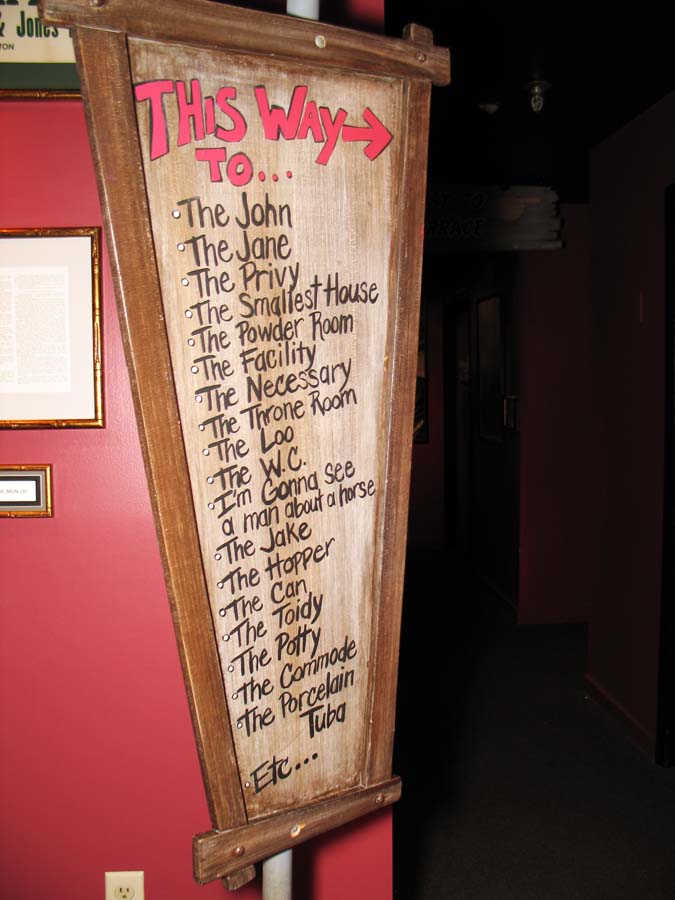 & Jones
TON
THIS WAY →
TO...
The John
The Jane
The Privy
The Smallest House
The Powder Room
The Facility
The Necessary
The Throne Room
The Loo
The W.C.
I'm Gonna see
a man about a horse
The Jake
The Hopper
The Can
The Toidy
The Potty
The Commode
The Porcelain
Tuba
Etc...